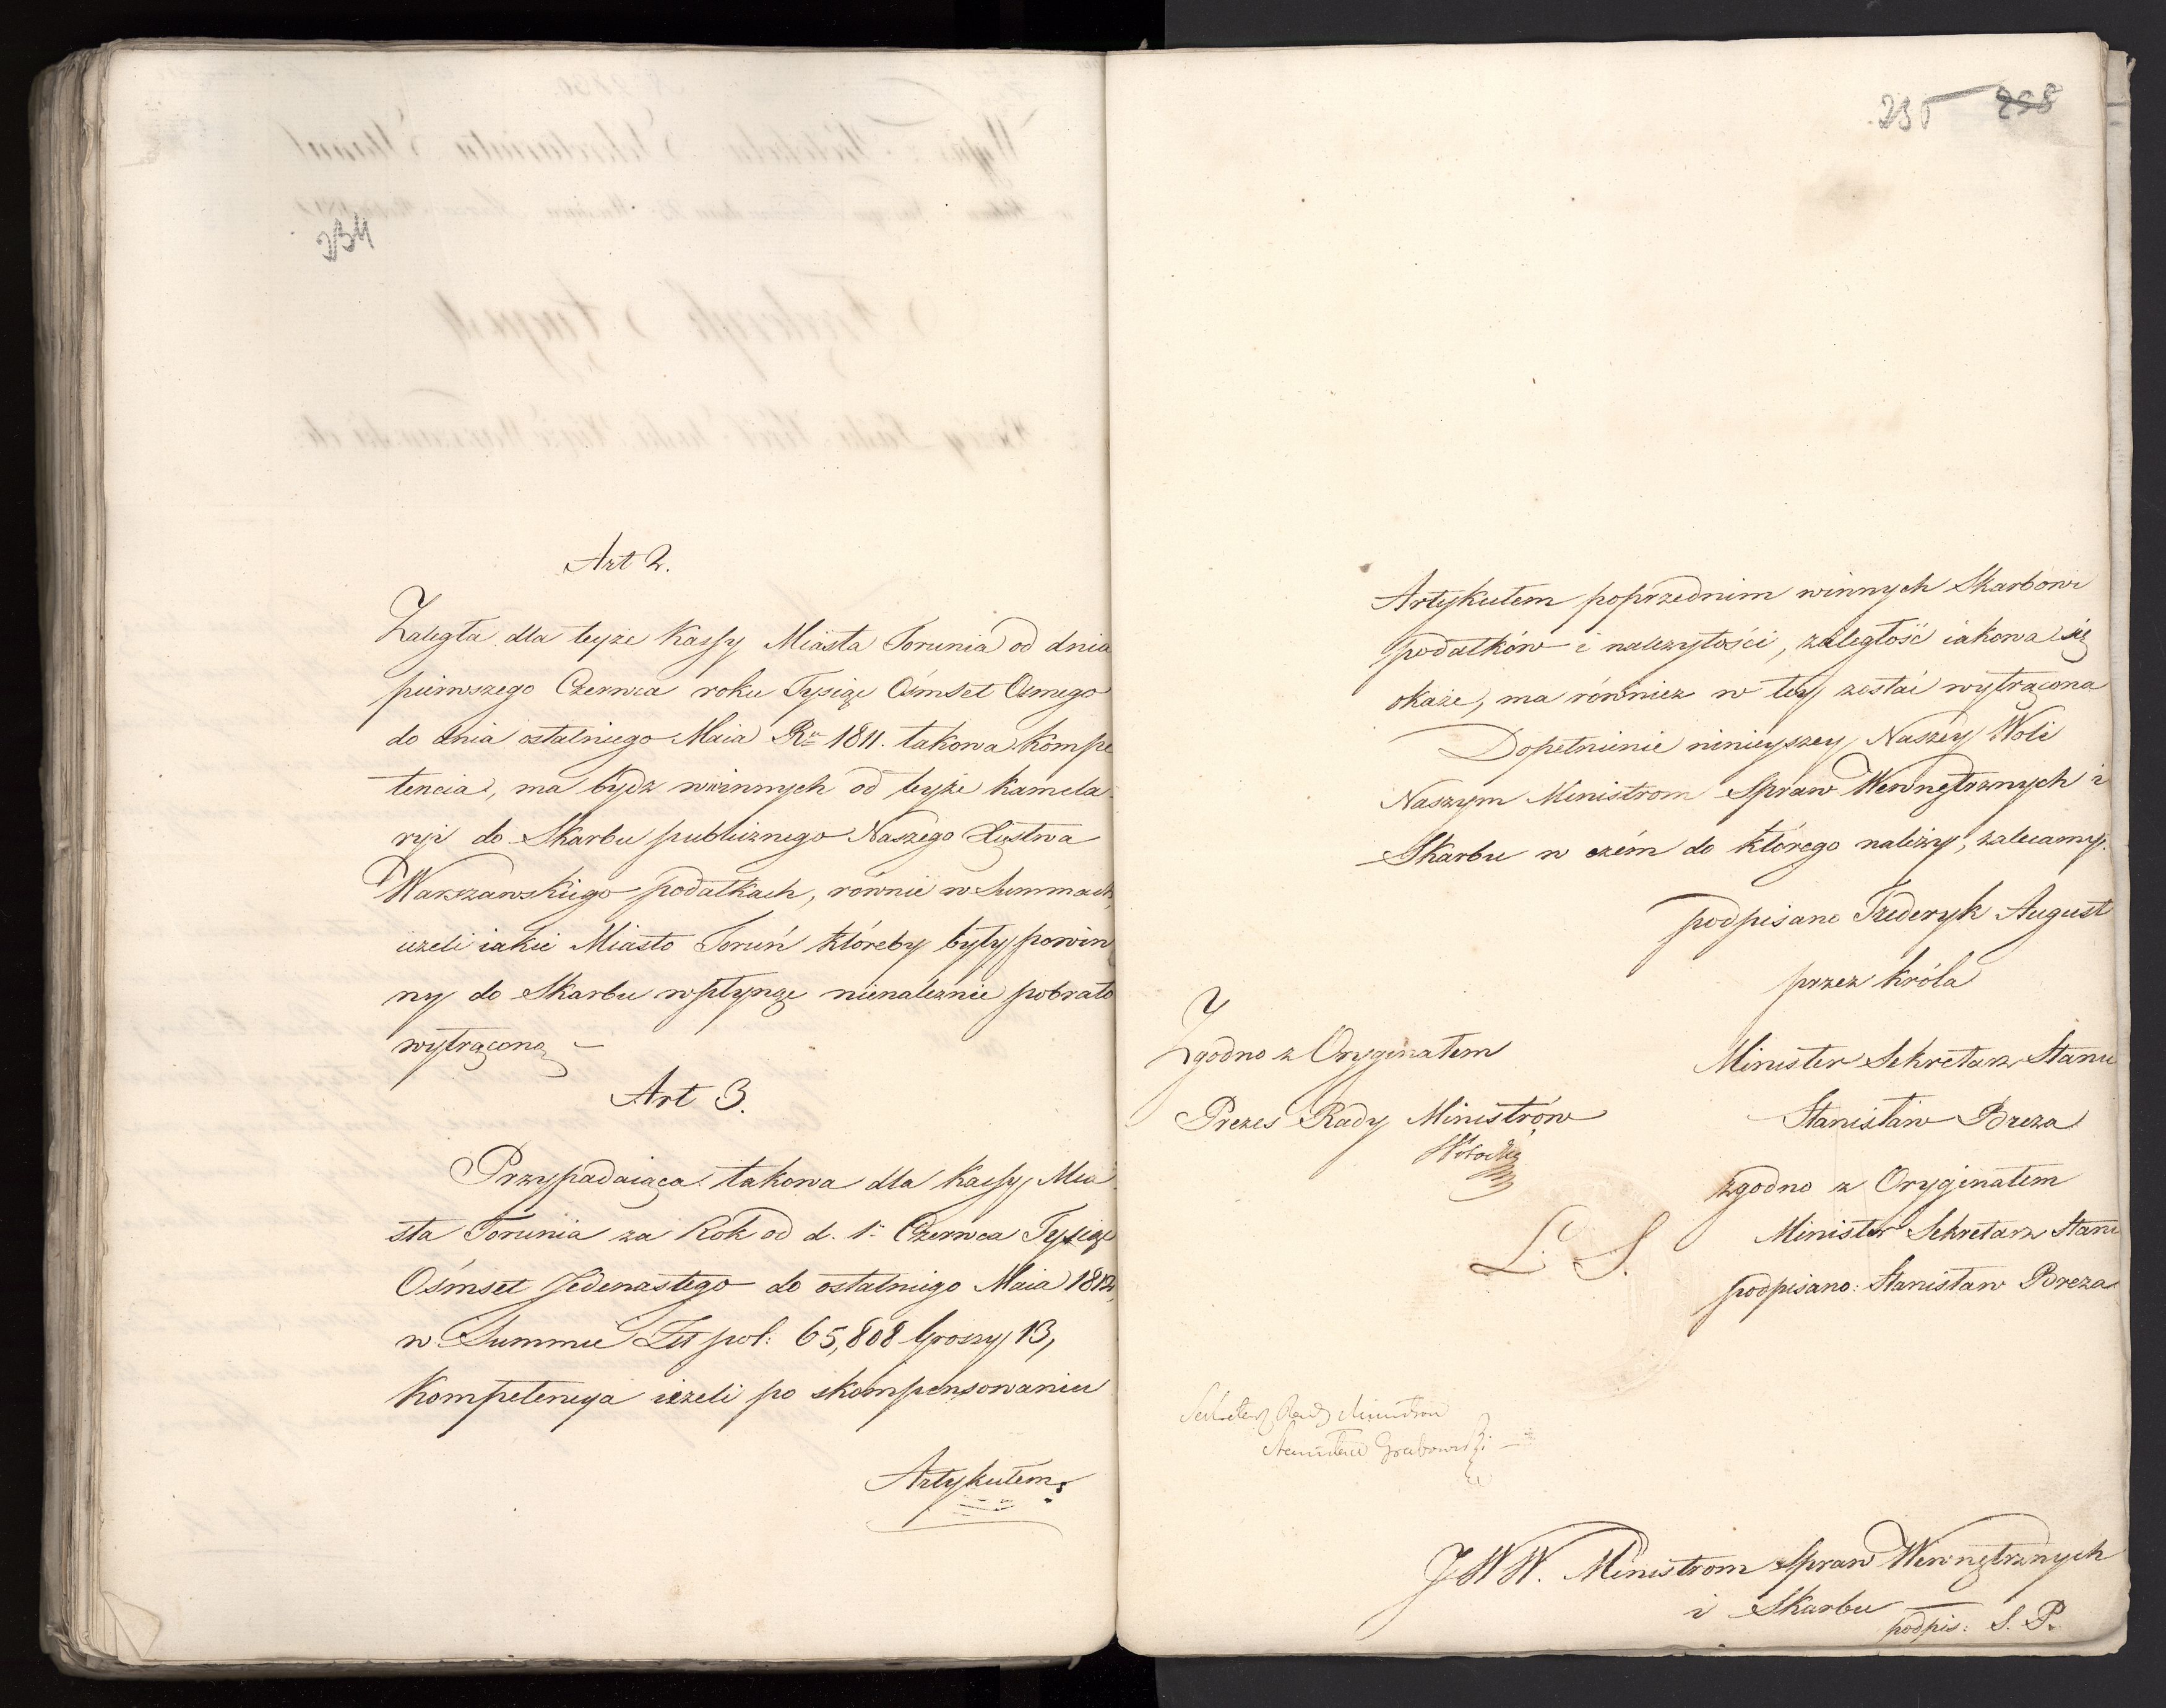 234
Art 2.
Zaległa dla teyże Kassy Miasta Torunia od dnia
pierwszego Czerwca roku Tysiąc Ośmset Osmego
do dnia ostatniego Maia Ru 1811. takowa Kompe
tencia, ma bydz winnych od teyże Kamela-
ryi do Skarbu publicznego Naszego Xięstwa
Warszawskiego podatkach, równie w Summach,
ieżeli iakie Miasto Toruń któreby były powin
ny do Skarbu wpłynąć nienależnie pobrało
wytrąconą –
Art 3.
Przypadaiąca takowa dla Kassy Mia
sta Torunia za Rok od d. 1. Czerwca Tysiąc
Ośmset Jedenastego do ostatniego Maia 1812,
w Summie Złt pol: 65,808 Groszy 13,
Kompetencya ieżeli po skompensowaniu
Artykułem
235 238
Artykułem poprzednim winnych Skarbowi
podatków i należytości, zaległość iakowa się
okaże, ma również w tey zostać wytrącona
Dopełnienie ninieyszey Naszey Woli
Naszym Ministrom Spraw Wewnętrznych i
Skarbu w czém do którego należy, zalecamy.
podpisano Frederyk August
przez Króla
Minister Sekretarz Stanu
Stanisław Breza
Zgodno z Oryginałem
Prezes Rady Ministrów
zgodno z Oryginałem
Minister Sekretarz Stanu
podpisano: Stanisław Breza
L. S.
Sekretarz Rady Ministrow
Stanisław Grabowski
JWW. Ministrom Spraw Wewnętrznych
i Skarbu
podpis: S. P.